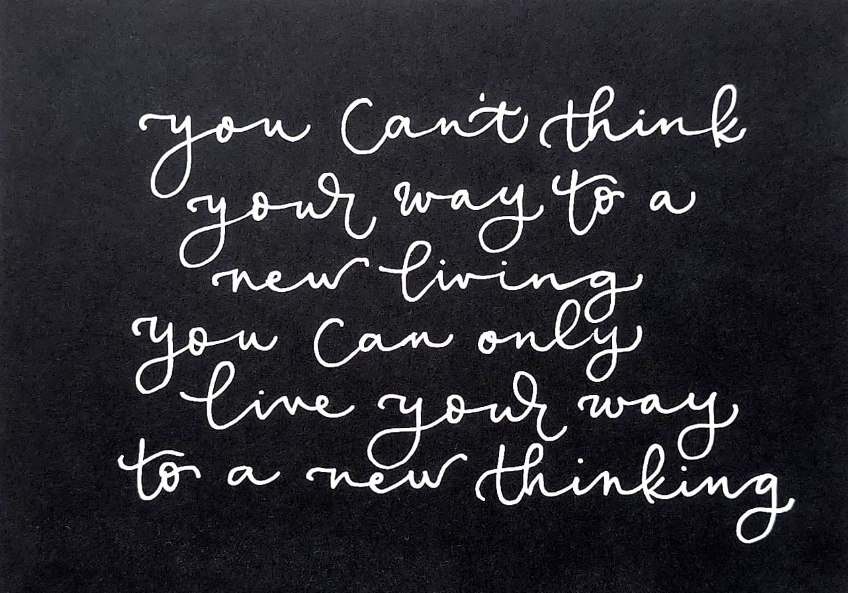 you can't think
your way to a
new living
you can only
live your way
to a new thinking